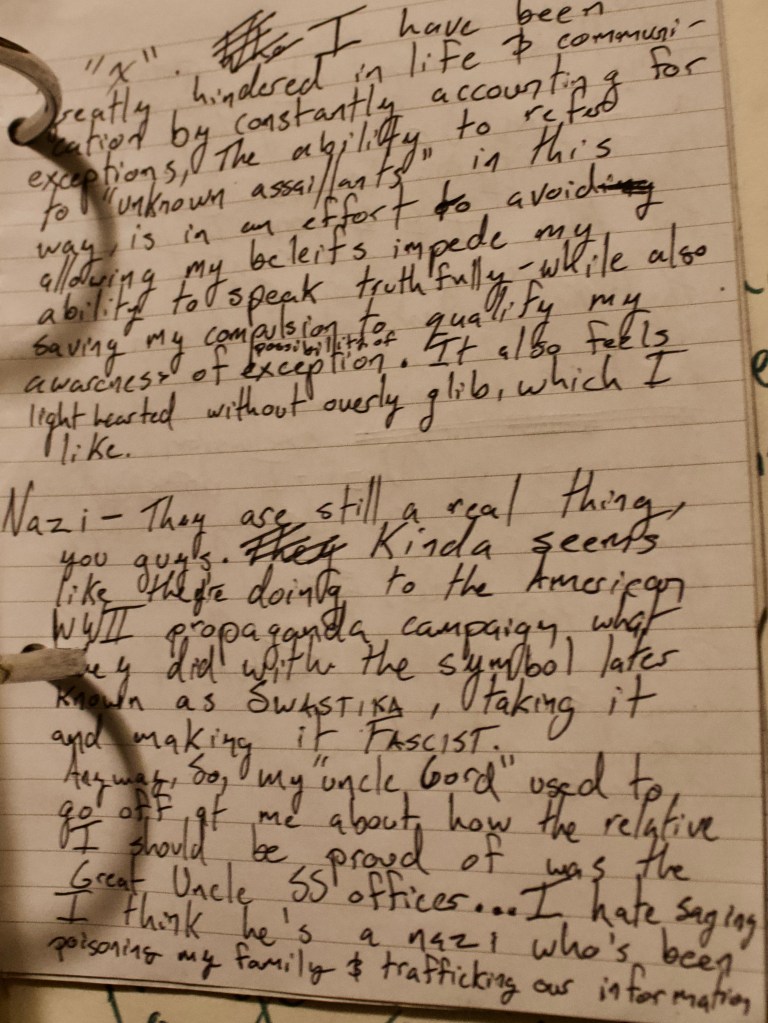 "x". I have been
greatly hindered in life & communi-
cation by constantly accounting for
exceptions, The ability to refer
to "unknown assaillants" in this
way, is in an effort to avoid
allowing my beleifs impede my
ability to speak truthfully - while also
saving my compulsion to qualify my
awareness of possibility of exception. It also feels
light hearted without overly glib, which I
like.
Nazi - They are still a real thing,
you guys. Kinda seems
like they're doing to the American
WWII propaganda campaign, what
they did with the symbol later
known as SWASTIKA, taking it
and making it FASCIST.
Anyway, So, my "uncle Gord" used to
go off at me about how the relative
I should be proud of was the
Great Uncle SS officer... I hate saying
I think he's a nazi who's been
poisoning my family & trafficking our information